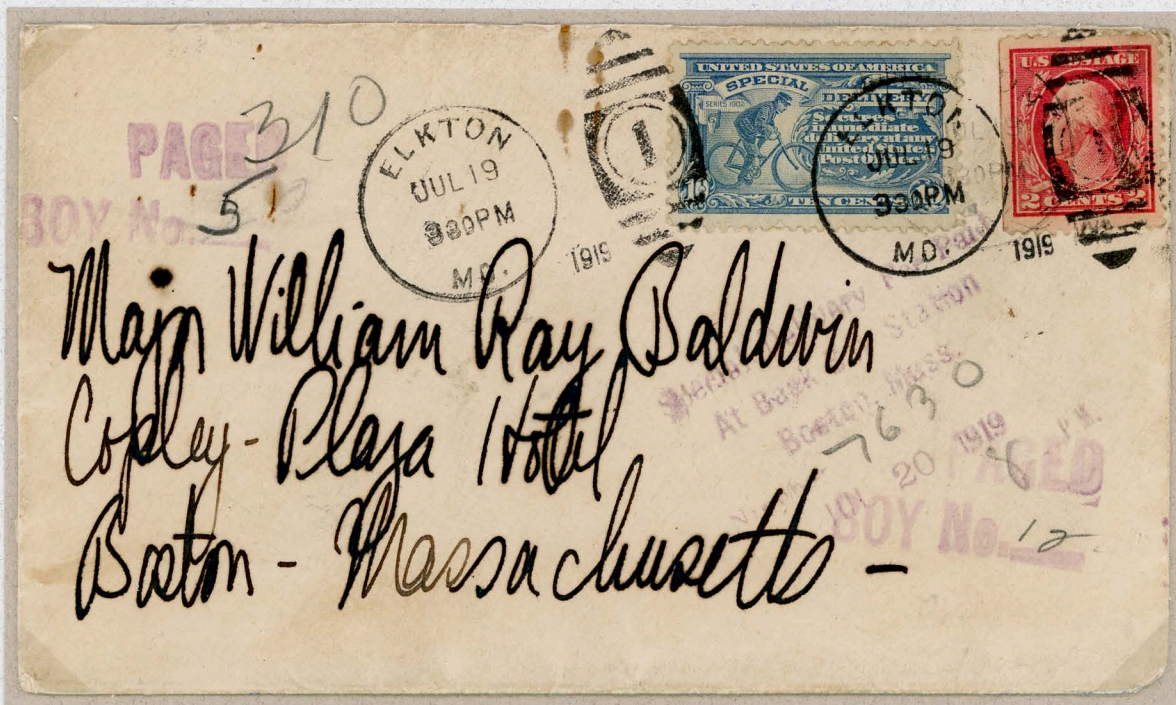 PAGED
310
BOY No.
5
ELKTON
JUL 19
330PM
MD.
1919
1
UNITED STATES OF AMERICA
SPECIAL
DELIVERY
SERIES 1902
Secures
immediate
delivery at any
United States
Post Office
TEN CENTS
ELKTON
JUL 19
330PM
MD.
1919
U.S. POSTAGE
2 CENTS 2
Major William Ray Baldwin
Copley-Plaza Hotel
Boston - Massachusetts -
Special Delivery Paid
At Back Station
Boston, Mass.
7630
JUL 20 1919
8 P.M.
PAGED
BOY No. 12